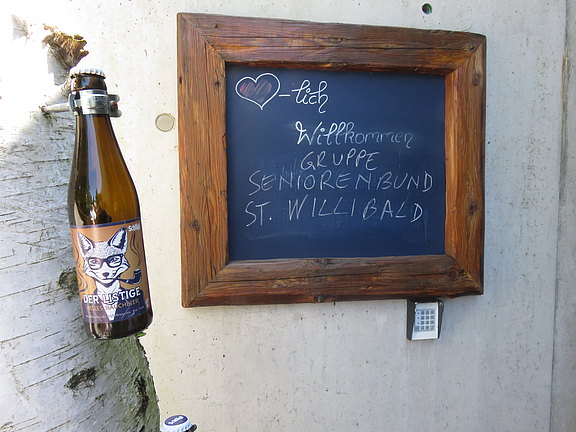 -lich
Willkommen
GRUPPE
SENIORENBUND
ST. WILLIBALD
DER LISTIGE